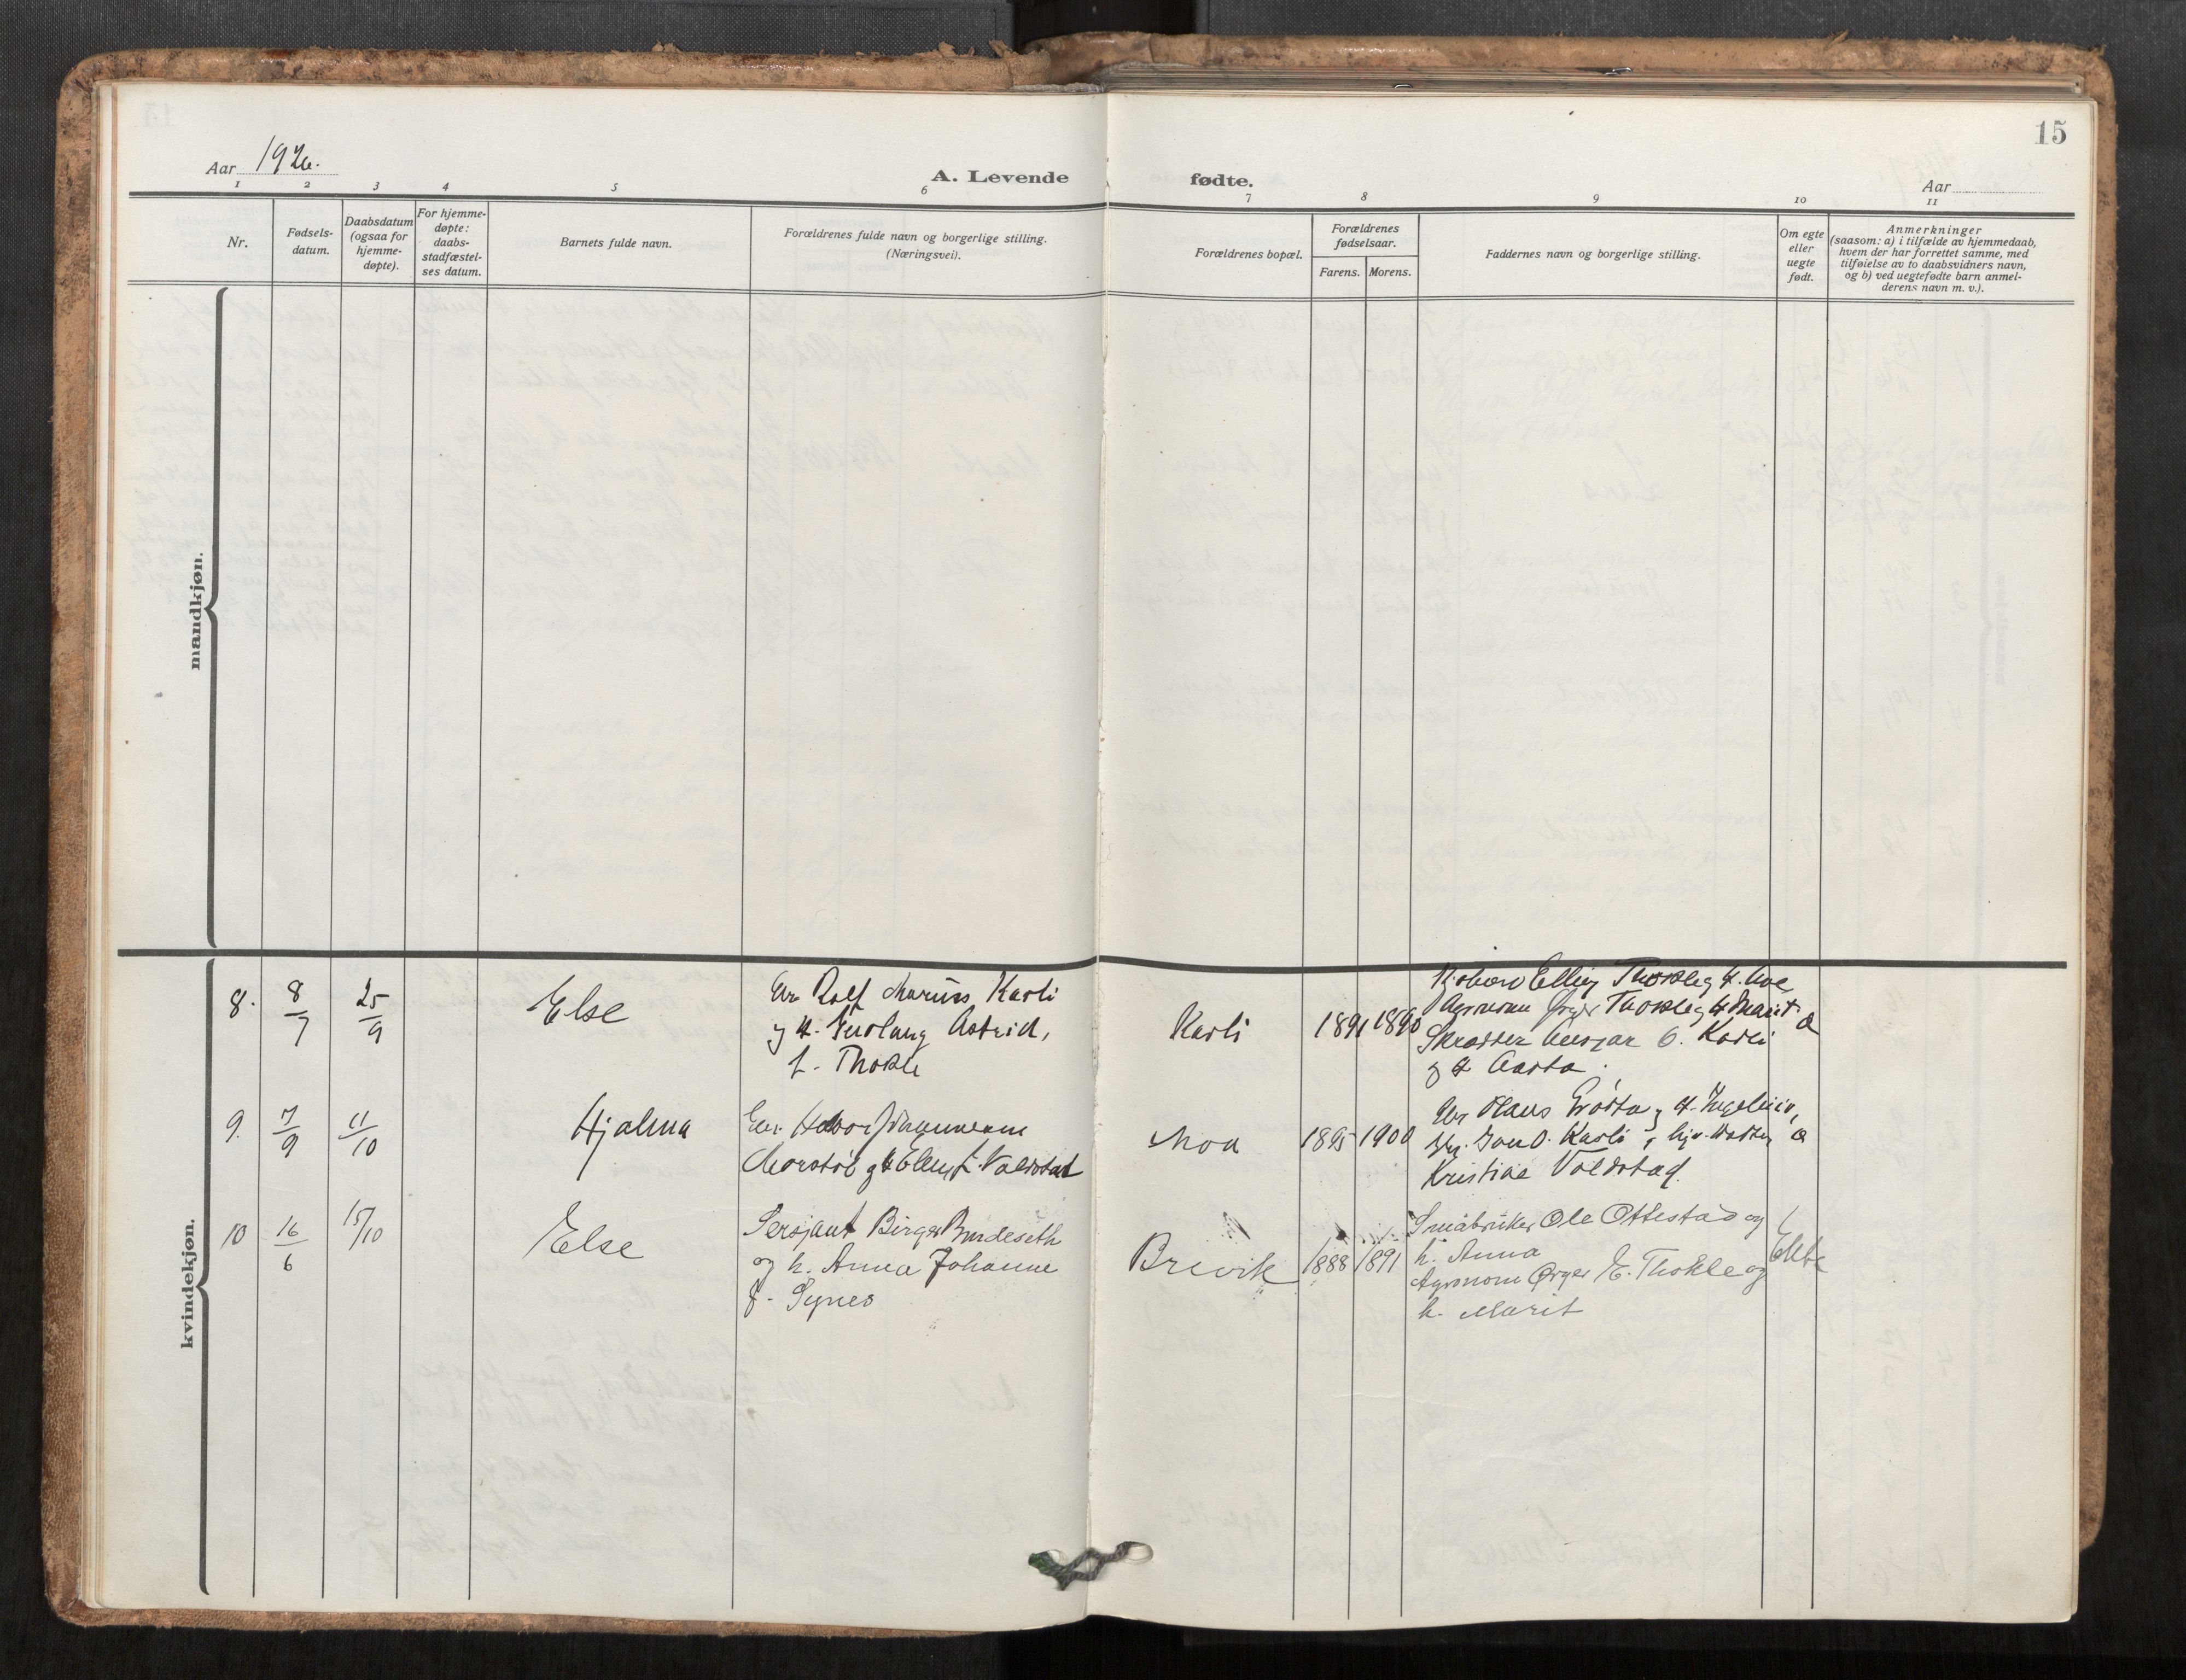 15
Aar 1926.
A. Levende fødte.
Aar
1 2 3 4 5 6 7 8 9 10 11
Nr.
Fødsels-
datum.
Daabsdatum
(ogsaa for
hjemme-
døpte).
For hjemme-
døpte:
daabs-
stadfæstel-
ses datum.
Barnets fulde navn.
Forældrenes fulde navn og borgerlige stilling.
(Næringsvei).
Forældrenes bopæl.
Forældrenes
fødselsaar.
Farens. Morens.
Faddernes navn og borgerlige stilling.
Om egte
eller
uegte
født.
Anmerkninger
(saasom: a) i tilfælde av hjemmedaab,
hvem der har forrettet samme, med
tilføielse av to daabsvidners navn,
og b) ved uegtefødte barn anmel-
derens navn m. v.).
mandkjøn.
kvindekjøn.
8. 8/7 25/9
Else
Rolf Marius Karli
Astrid,
f. Thokle
Karli
1891 1890
Thokle
Agronom Thokle Marit
Karli
Aasta.
9. 7/9 11/10
Hjalma
Voldstad
Moa
1895 1900
Hans
Jon O. Karli
Kristine Voldstad
10 16/6 15/10
Else
Sersjant Birger Burdeseth
og h. Anna Johanne
f. Synes
Brevik
1888 1891
Småbruker Ole Ottestad og
h. Anna
Agronom Ørger E. Thokle og
h. Marit
Ekte